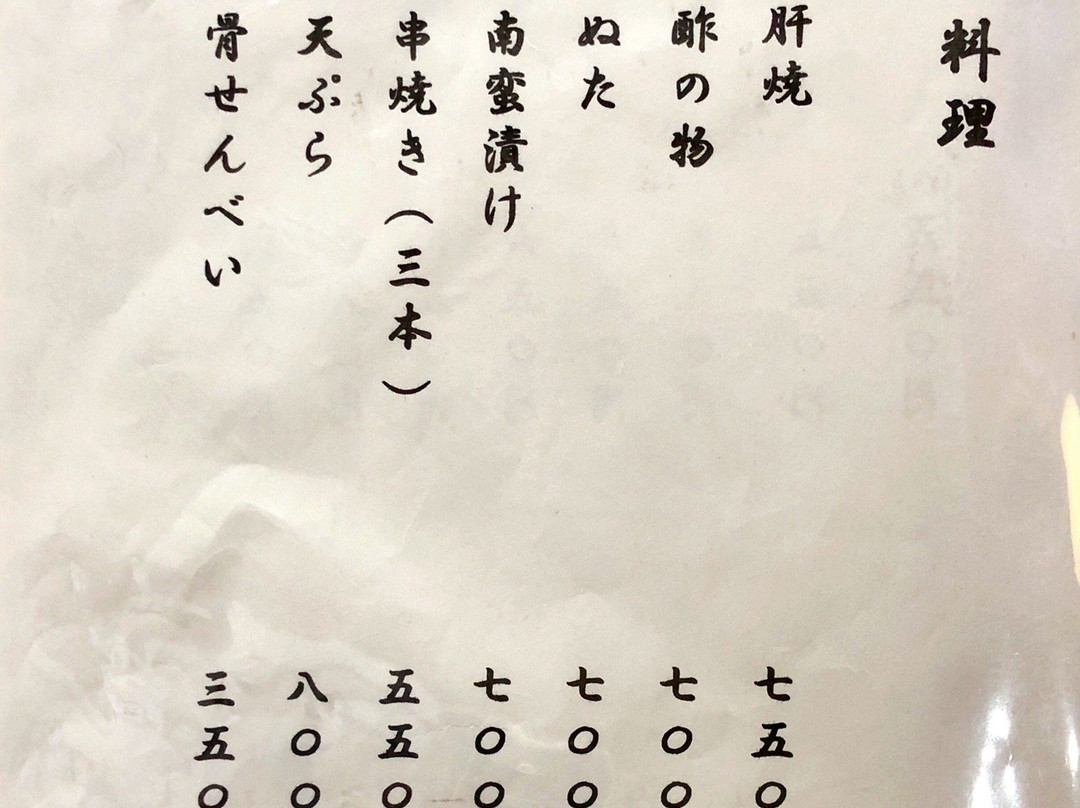 料理
肝焼 七五〇
酢の物 七〇〇
ぬた 七〇〇
南蛮漬け 七〇〇
串焼き（三本） 五五〇
天ぷら 八〇〇
骨せんべい 三五〇